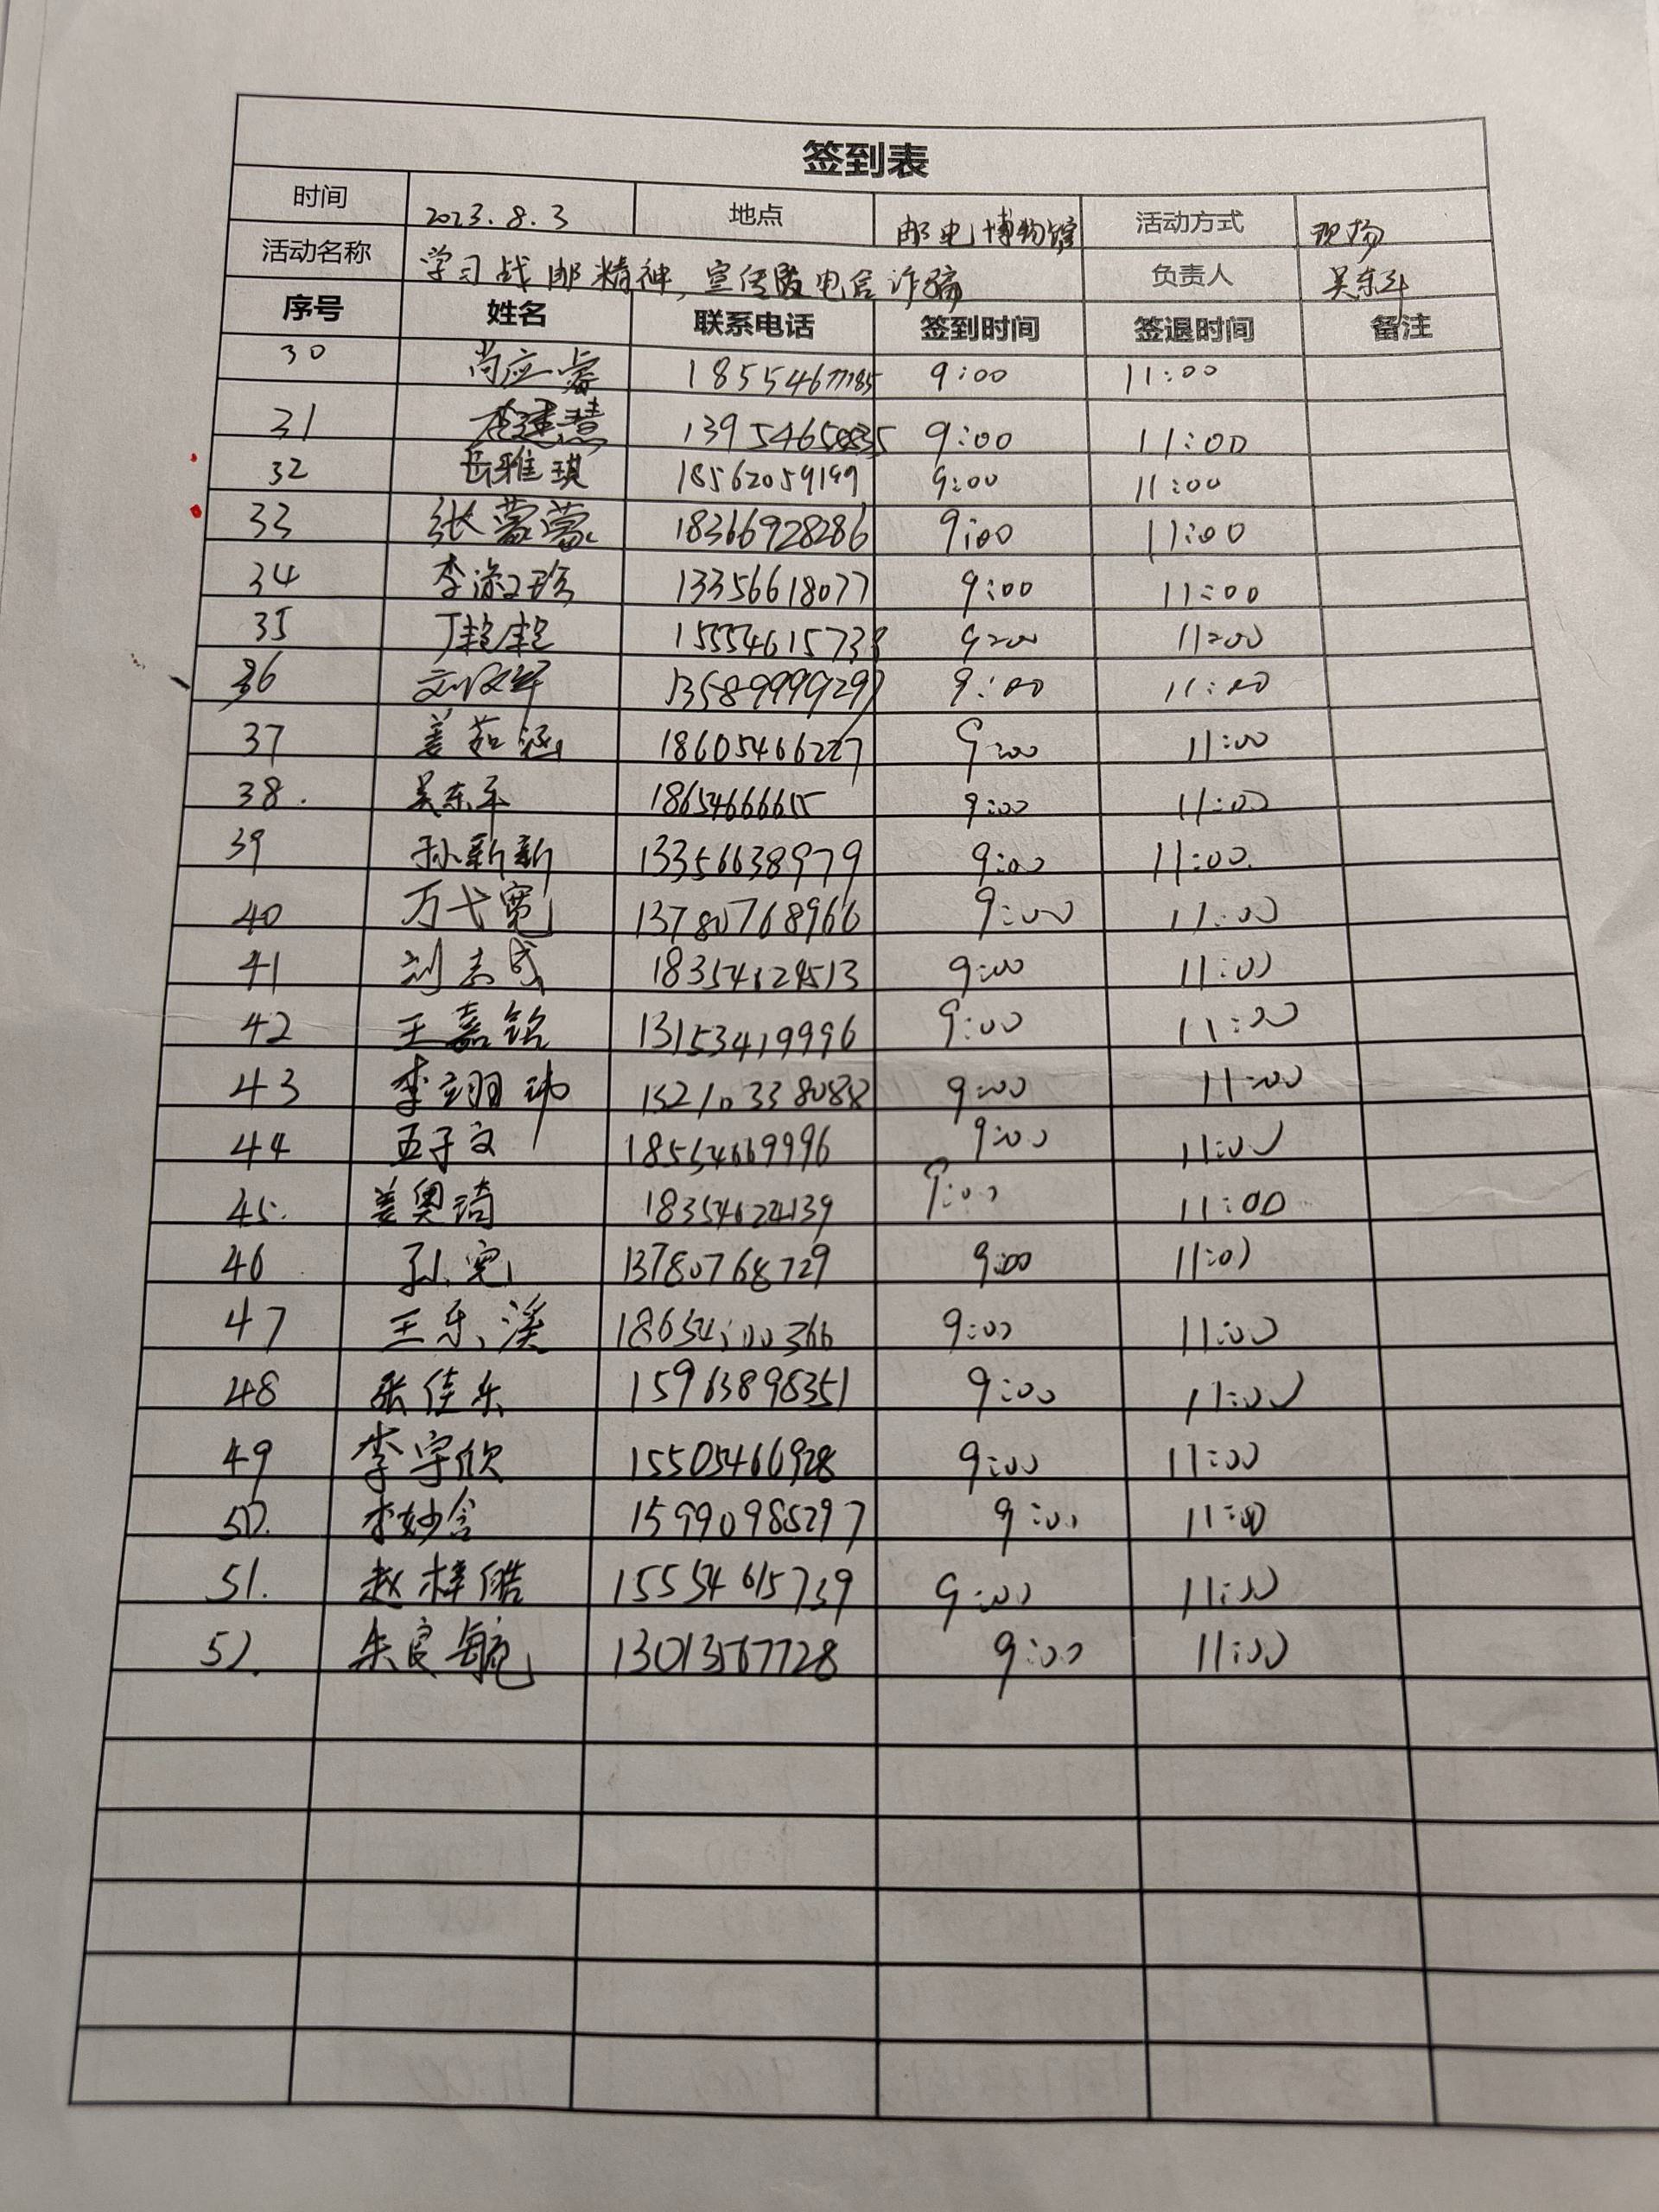 签到表
时间 2023.8.3 地点 邮电博物馆 活动方式 现场
活动名称 学习战邮精神,宣传反电信诈骗 负责人 吴东军
序号 姓名 联系电话 签到时间 签退时间 备注
30 尚应睿 18554677185 9:00 11:00
31 慧 9:00 11:00
32 岳雅琪 18562059199 9:00 11:00
33 张蒙蒙 18366928286 9:00 11:00
34 李淑珍 13356618077 9:00 11:00
35 15554615738 9:00 11:00
36 9:00 11:00
37 姜茹涵 18605466227 9:00 11:00
38. 吴东军 18654666655 9:00 11:00
39 孙新新 13356638979 9:00 11:00.
40 万弋宽 13780768966 9:00 11:00
41 刘志成 9:00 11:00
42 王嘉铭 13153419996 9:00 11:00
43 李翊玮 15210338088 9:00 11:00
44 子文 18554669996 9:00 11:00
45. 姜奥琦 18354624139 9:00 11:00
46 孙宽 13780768729 9:00 11:00
47 王乐溪 18654600366 9:00 11:00
48 张佳乐 15963898351 9:00 11:00
49 李宇欣 15505466928 9:00 11:00
50. 李妙含 15990985297 9:00 11:00
51. 赵梓皓 15554615739 9:00 11:00
52. 朱良毓 13013567728 9:00 11:00